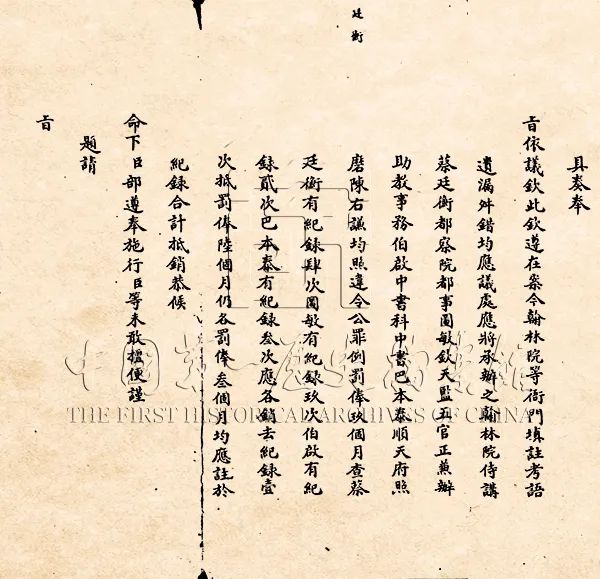 廷衡
具奏奉
旨依議欽此欽遵在案今翰林院等衙門填註考語
遺漏舛錯均應議處應將承辦之翰林院侍講
蔡廷衡都察院都事圖敏欽天監五官正兼辦
助教事務伯啟中書科中書巴本泰順天府照
磨陳右謙均照違令公罪例罰俸玖個月查蔡
廷衡有紀錄肆次圖敏有紀錄玖次伯啟有紀
錄貳次巴本泰有紀錄叁次應各銷去紀錄壹
次抵罰俸陸個月仍各罰俸叁個月均應註於
紀錄合計抵銷恭候
命下臣部遵奉施行臣等未敢擅便謹
題請
旨
中国第一历史档案馆
THE FIRST HISTORICAL ARCHIVES OF CHINA